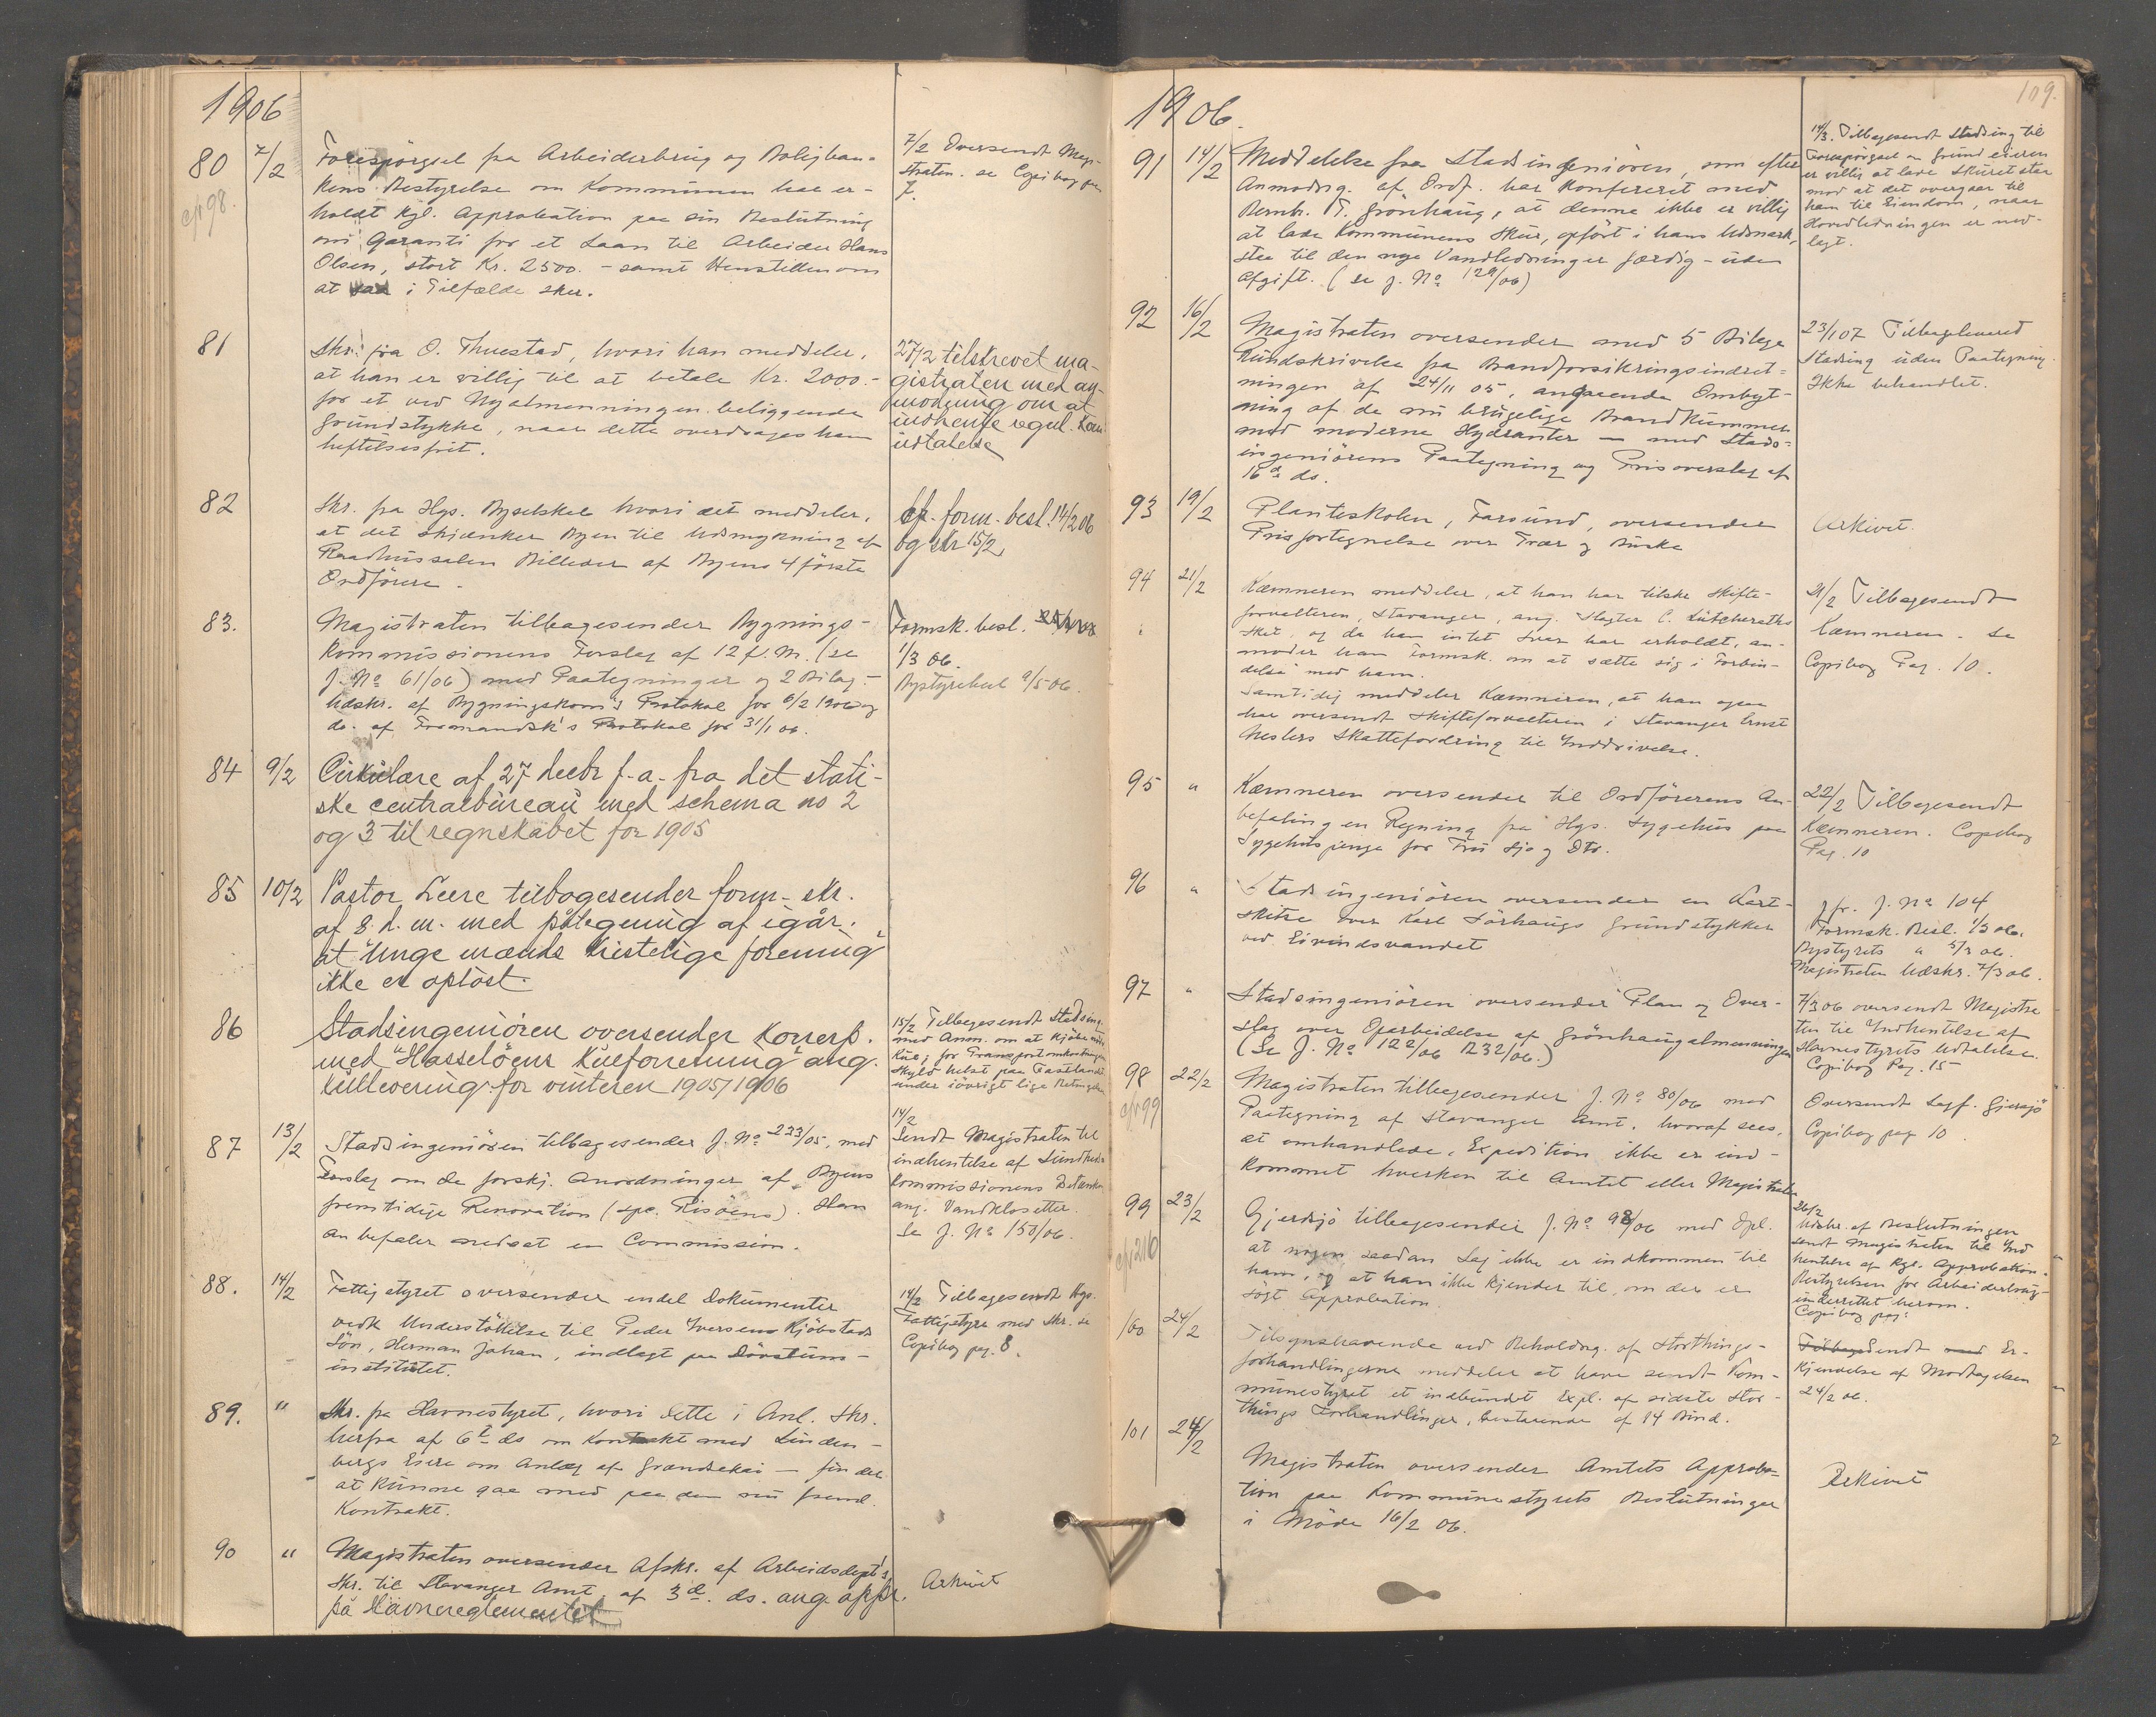 1906
80 7/2 Forespörgsel fra Arbeiderbrug og Boligban-
cfr 98. kens Bestyrelse om Kommunen har er-
holdt Kgl. Approbation paa sin Beslutning
om Garanti for et Laan til Arbeider Hans
Olsen, stort Kr. 2500.- samt Henstillen om
at saa i Tilfælde sker.
7/2 Oversendt Magi-
straten. se Copibog pag
7.
81 Skr. fra O. Thuestad, hvori han meddeler,
at han er villig til at betale Kr. 2000.-
for et ved Nyalmenningen beliggende
Grundstykke, naar dette overdrages ham
heftelsesfrit.
27/2 tilskrevet ma-
gistraten med an-
modning om at
indhente regul. Kom
udtalelse
82 Skr. fra Hgs. Byselskab hvori det meddeler,
at det skjænker Byen til Udsmykning af
Raadhussalen Billeder af Byens 4 förste
Ordförere.
Cfr. form. besl. 14/2 06
og skr 15/2
83. Magistraten tilbagesender Bygnings-
kommissionens Forslag af 12 f. M. (se
J. No 61/06) med Paategninger og 2 Bilag.-
Udskr. af Bygningskom's Protokol for 6/2 1906 og
do. af Formandsk's Protokol for 31/1 06.
Formsk. besl.
1/3 06.
Bystyrebesl 9/5 06.
84 9/2 Cirkulære af 27 decbr f.a. fra det stati-
ske centralbureau med schema no 2
og 3 til regnskabet for 1905
85 10/2 Pastor Leere tilbagesender form. skr.
af 8. d. m. med påtegning af igår,
at "Unge mænds kristelige forening"
ikke er oplöst.
86 Stadsingeniören oversender Korresp.
med "Hasselöens Kulforretning" ang.
Kullevering for vinteren 1905/1906
15/2 Tilbagesendt Stadsing.
med Anm. om at kjöbe
Kul, for Transportomkostningers
Skyld helst paa Fastlandet
under iövrigt lige Betingelser
87 13/2 Stadsingeniören tilbagesender J. No 223/05, med
Forslag om de forskj. Anordninger af Byens
fremtidige Renovation (spc. Risöens). Han
anbefaler nedsat en Commission.
14/2
Sendt Magistraten til
indhentelse af Sundheds-
kommissionens Betænkn.
ang. Vandklosetter.
Se J. No 150/06.
88. 14/2 Fattigstyret oversender endel Dokumenter
vedk Understöttelse til Peder Iversens Kjöbstads
Sön, Herman Johan, indlagt paa Dövstum-
institutet.
14/2 Tilbagesendt Hgs.
Fattigstyre med Skr. se
Copibog pag. 8.
89. " Skr. fra Havnestyret, hvori dette i Anl. Skr.
herfra af 6te ds om Kontrakt med Linden-
bergs Eiere om Anlæg af Grændsekai - finder
at kunne gaa med paa den nu freml.
Kontrakt.
90 " Magistraten oversender Afskr. af Arbeidsdept's
Skr. til Stavanger Amt af 3d. ds. ang. appr.
på Havnereglementet
Arkivet
109.
1906.
91 14/2 Meddelelse fra Stadsingeniören, om efter
Anmodng. af Ordf. har Konfereret med
Bernh. T. Grönhaug, at denne ikke er villig
at lade Kommunens Skur, opfört i hans Udmark,
staa til den nye Vandledninger færdig - uden
Afgift. (se J. No 129/06)
14/3. Tilbagesendt Stadsing til
Forespörgsel om Grundeieren
er villig at lade Skuret staa
mod at det overgaar til
ham til Eiendom, naar
Hovedledningen er ned-
lagt.
92 16/2 Magistraten oversender med 5 Bilage
Rundskrivelse fra Brandforsikringsindret-
ningen af 24/11 05, angaaende Ombyt-
ning af de nu brugelige Brandkummer
med moderne Hydranter - med Stads-
ingeniörens Paategning og Prisoverslag af
16d ds.
23/1 07 Tilbageleveret
Stadsing uden Paategning.
Ikke behandlet.
93 19/2 Planteskolen, Farsund, oversender
Prisfortegnelse over Trær og Buske
Arkivet.
94 21/2 Kæmneren meddeler, at han har tilskr Skifte-
forvalteren, Stavanger, ang. Slagter C. Lütcheraths
Skat, og da han intet Svar har erholdt, an-
moder han Formsk. om at sætte sig i Forbin-
delse med ham.
Samtidig meddeler Kæmneren, at han ogsaa
har oversendt Skifteforvalteren i Stavanger Ernst
Neslers Skattefordring til Inddrivelse.
21/2 Tilbagesendt
Kæmneren. Se
Copibog Pag. 10.
95 " Kæmneren oversender til Ordförerens An-
befaling en Regning fra Hgs. Sygehus paa
Sygehuspenge for Fru Sjo og Dtr.
22/2 Tilbagesendt
Kæmneren. Copibog
Pag. 10
96 " Stadsingeniören oversender en Kart-
skitse over Karl Sörhaugs Grundstykker
ved Eivindsvandet
Jfr. J. No 104
Formsk. Besl. 1/3 06.
Bystyrets " 5/3 06.
Magistraten Udskr. 7/3 06.
97 " Stadsingeniören oversender Plan og Over-
slag over Oparbeidelse af Grönhaugalmenningen
(Se J. No 122/06 & 232/06.)
7/3 06 oversendt Magistra
ten til Indhentelse af
Havnestyrets Udtalelse.
Copibog Pag. 15
98 22/2 Magistraten tilbagesender J. No 80/06 med
cfr 99 Paategning af Stavanger Amt, hvoraf sees,
at omhandlede Expedition ikke er ind-
kommet hverken til Amtet eller Magistraten
Oversendt Sagf. Gjersjö
Copibog pag 10.
99 23/2 Gjersjö tilbagesender J. No 98/06 med Opl.
cfr 216 at nogen saadan Sag ikke er indkommen til
ham, og at han ikke kjender til, om der er
sögt Approbation.
26/2
Udskr. af Beslutningen
sendt Magistraten til Ind
hentelse af Kgl. Approbation.
Bestyrelsen for Arbeiderbrug-
underrettet herom.
Copibog pag:
100 24/2 Tilsynshavende ved Beholdng. af Storthings-
forhandlingerne meddeler at have sendt Kom-
munestyret et indbundet Expl. af sidste Stor-
things Forhandlinger, bestaaende af 14 Bind.
Tilbagesendt med Er-
kjendelse af Modtagelsen
24/2 06.
101 24/2 Magistraten oversender Amtets Approba-
tion paa Kommunestyrets Beslutninger
i Möde 16/2 06.
Arkivet